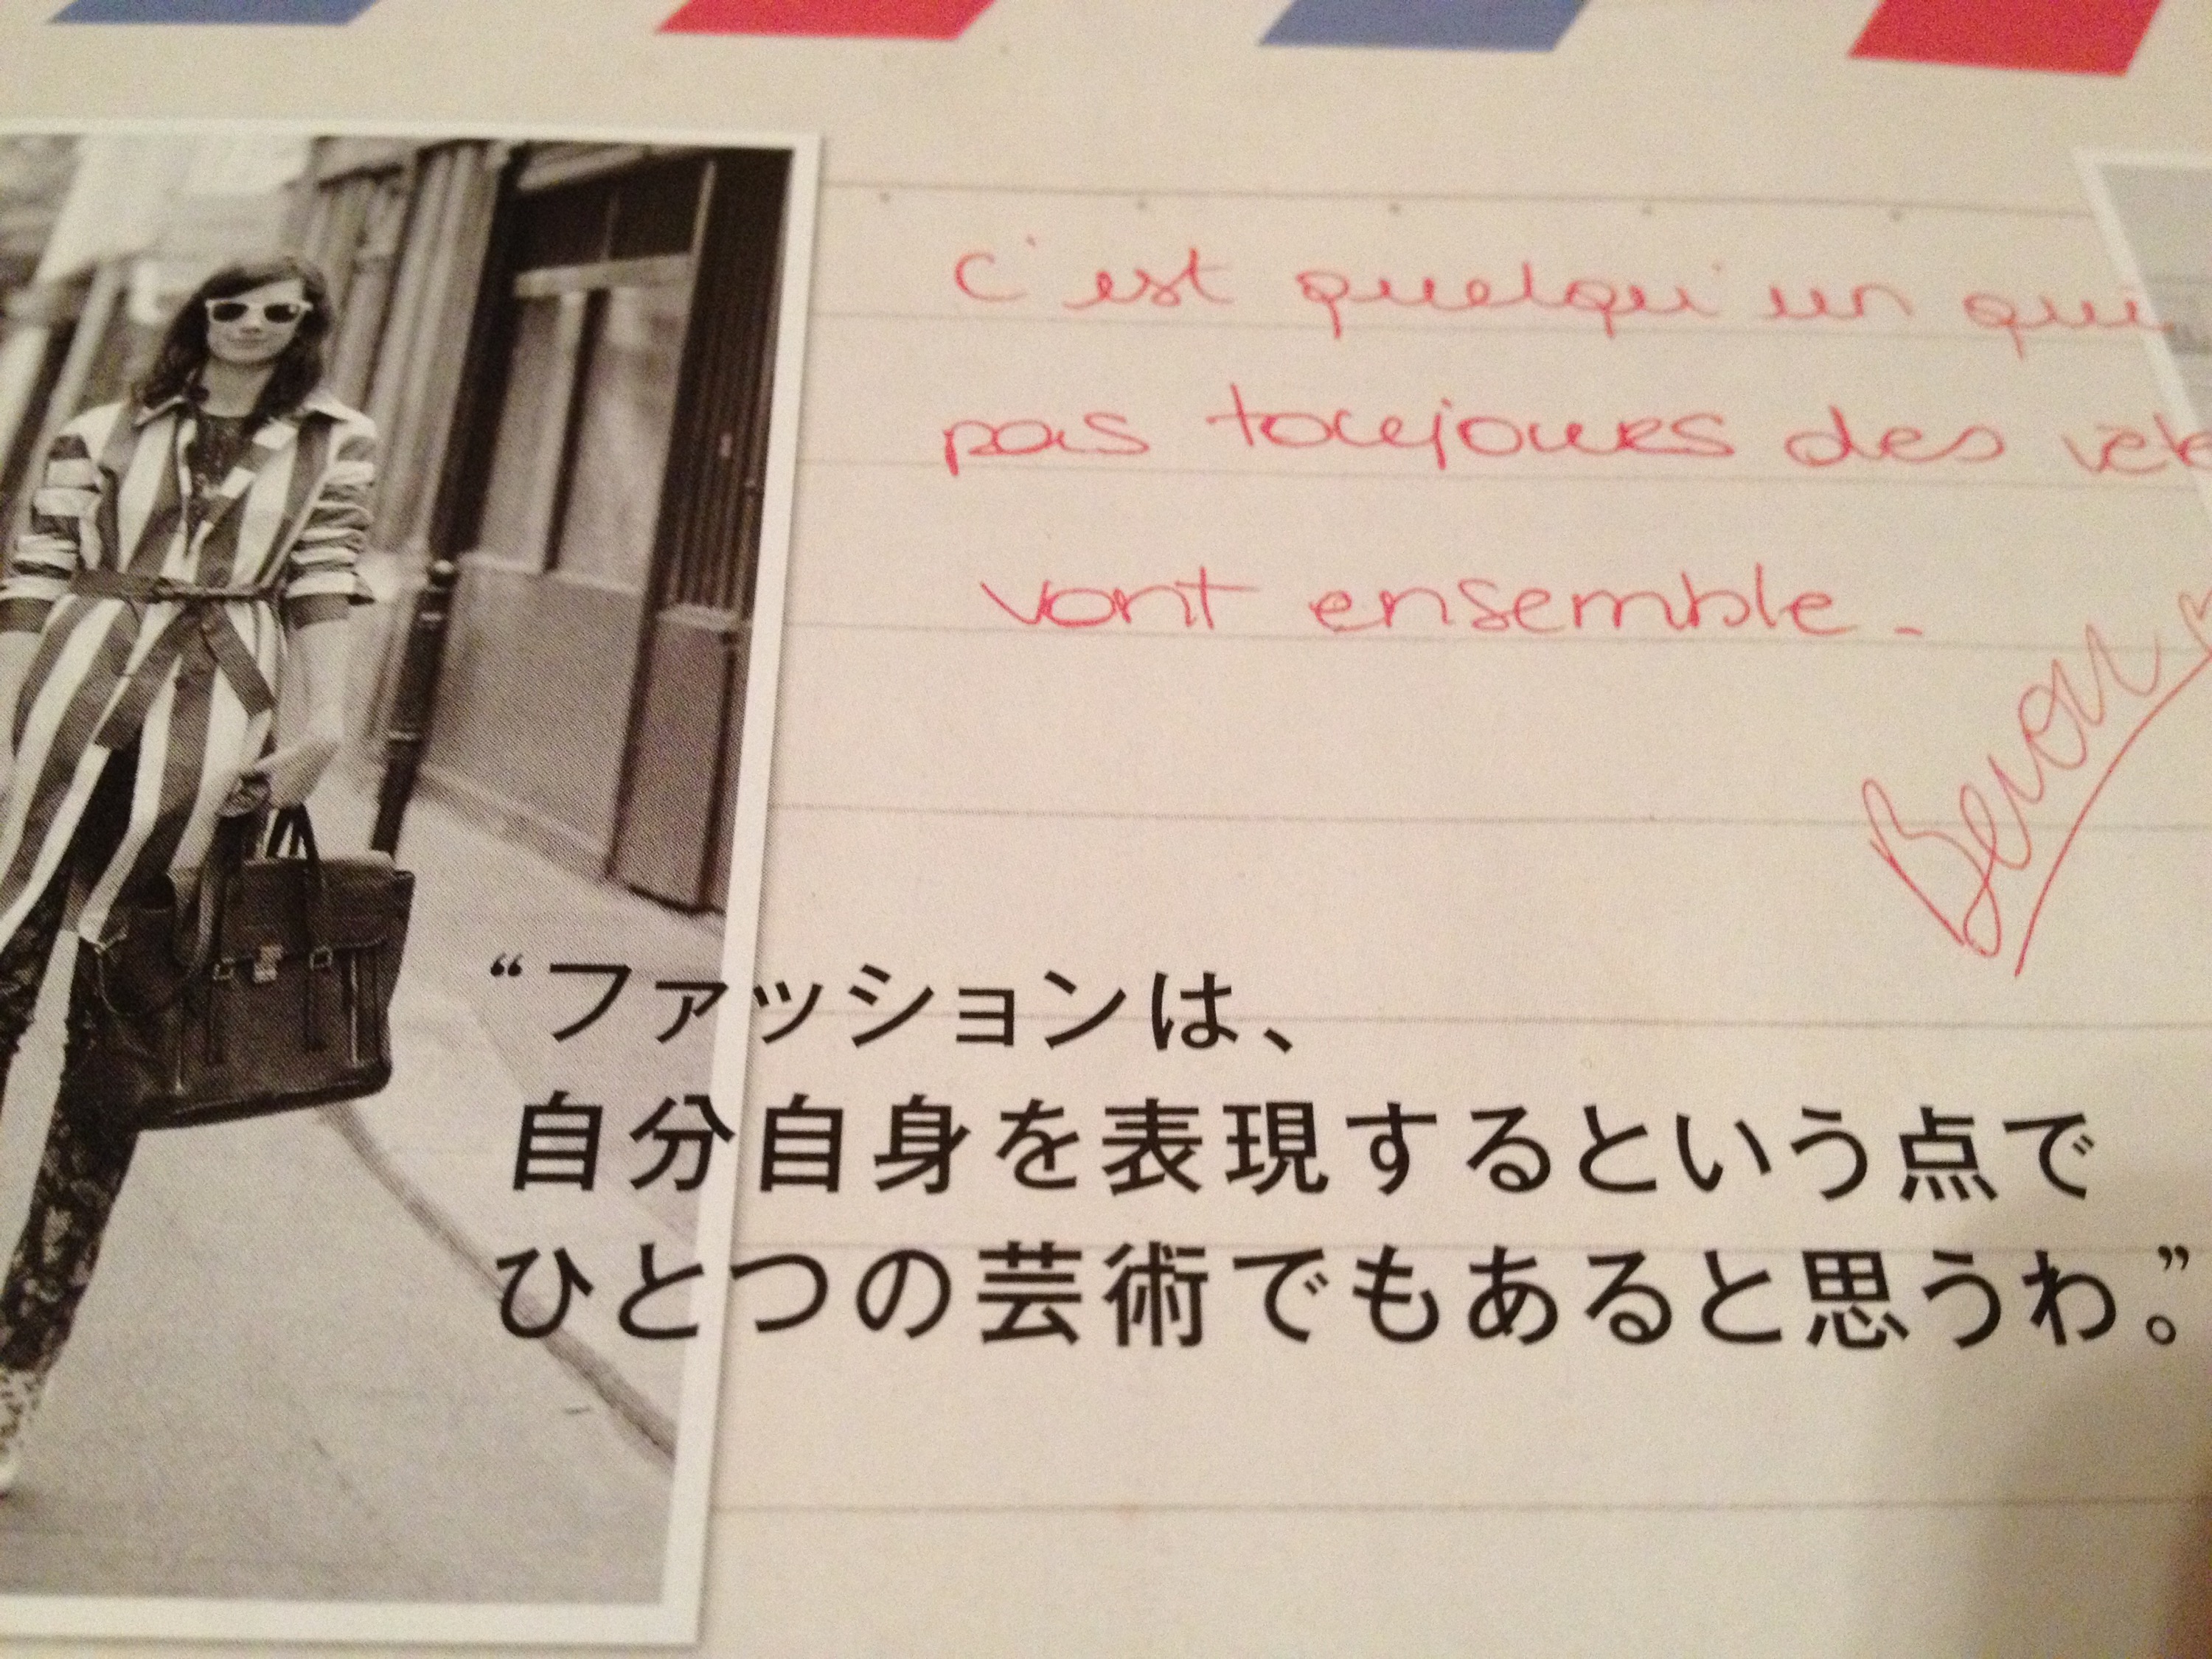 c'est quelqu'un qui
pas toujours des
vont ensemble.
“ファッションは、
自分自身を表現するという点で
ひとつの芸術でもあると思うわ。”